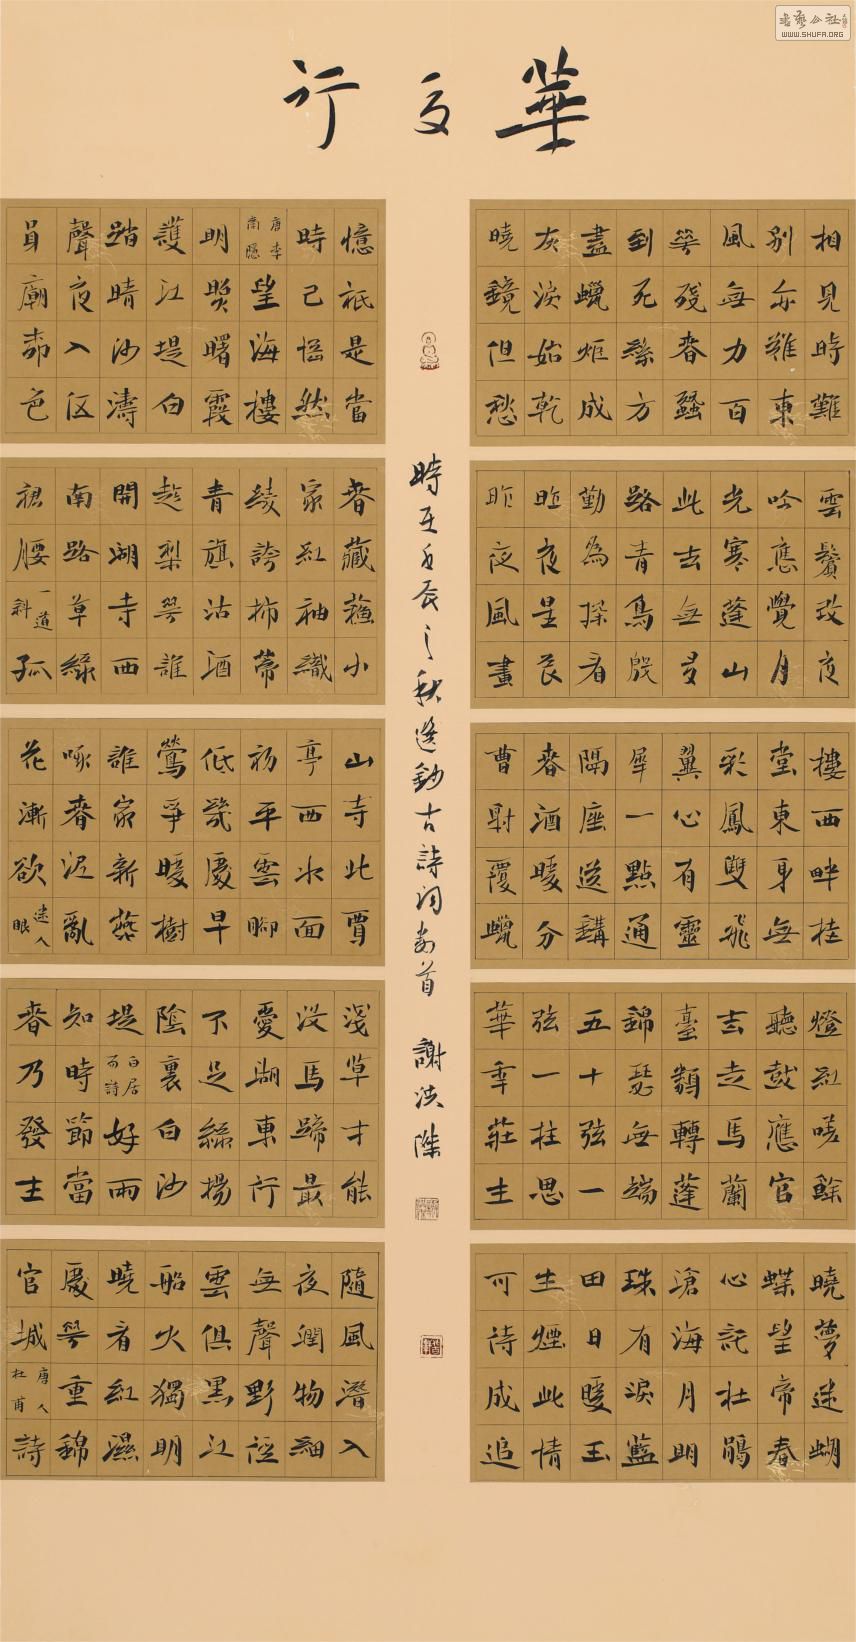 華 行
相見時難
別亦難東
風無力百
花殘春蠶
到死絲方
盡蠟炬成
灰淚始乾
曉鏡但愁
雲鬢改夜
吟應覺月
光寒蓬山
此去無多
路青鳥殷
勤為探看
昨夜星辰
昨夜風畫
樓西畔桂
堂東身無
彩鳳雙飛
翼心有靈
犀一點通
隔座送鉤
春酒暖分
曹射覆蠟
燈紅嗟餘
聽鼓應官
去走馬蘭
臺類轉蓬
錦瑟無端
五十弦一
弦一柱思
華年莊生
曉夢迷蝴
蝶望帝春
心託杜鵑
滄海月明
珠有淚藍
田日暖玉
生煙此情
可待成追
時至壬辰之秋選鈔古詩詞數首 謝洪
憶祇是當
時已惘然
唐李商隱望海樓
明照曙霞
護江堤白
踏晴沙濤
聲夜入伍
員廟柳色
春藏蘇小
家紅袖織
綾誇柿蒂
青旗沽酒
趁梨花誰
開湖寺西
南路草綠
裙腰一道斜孤
山寺北賈
亭西水面
初平雲腳
低幾處早
鶯爭暖樹
誰家新燕
啄春泥亂
花漸欲迷人眼
淺草才能
沒馬蹄最
愛湖東行
不足綠楊
陰裏白沙
堤白居易詩好雨
知時節當
春乃發生
隨風潛入
夜潤物細
無聲野徑
雲俱黑江
船火獨明
曉看紅濕
處花重錦
官城唐人杜甫詩
WWW.SHUFA.ORG